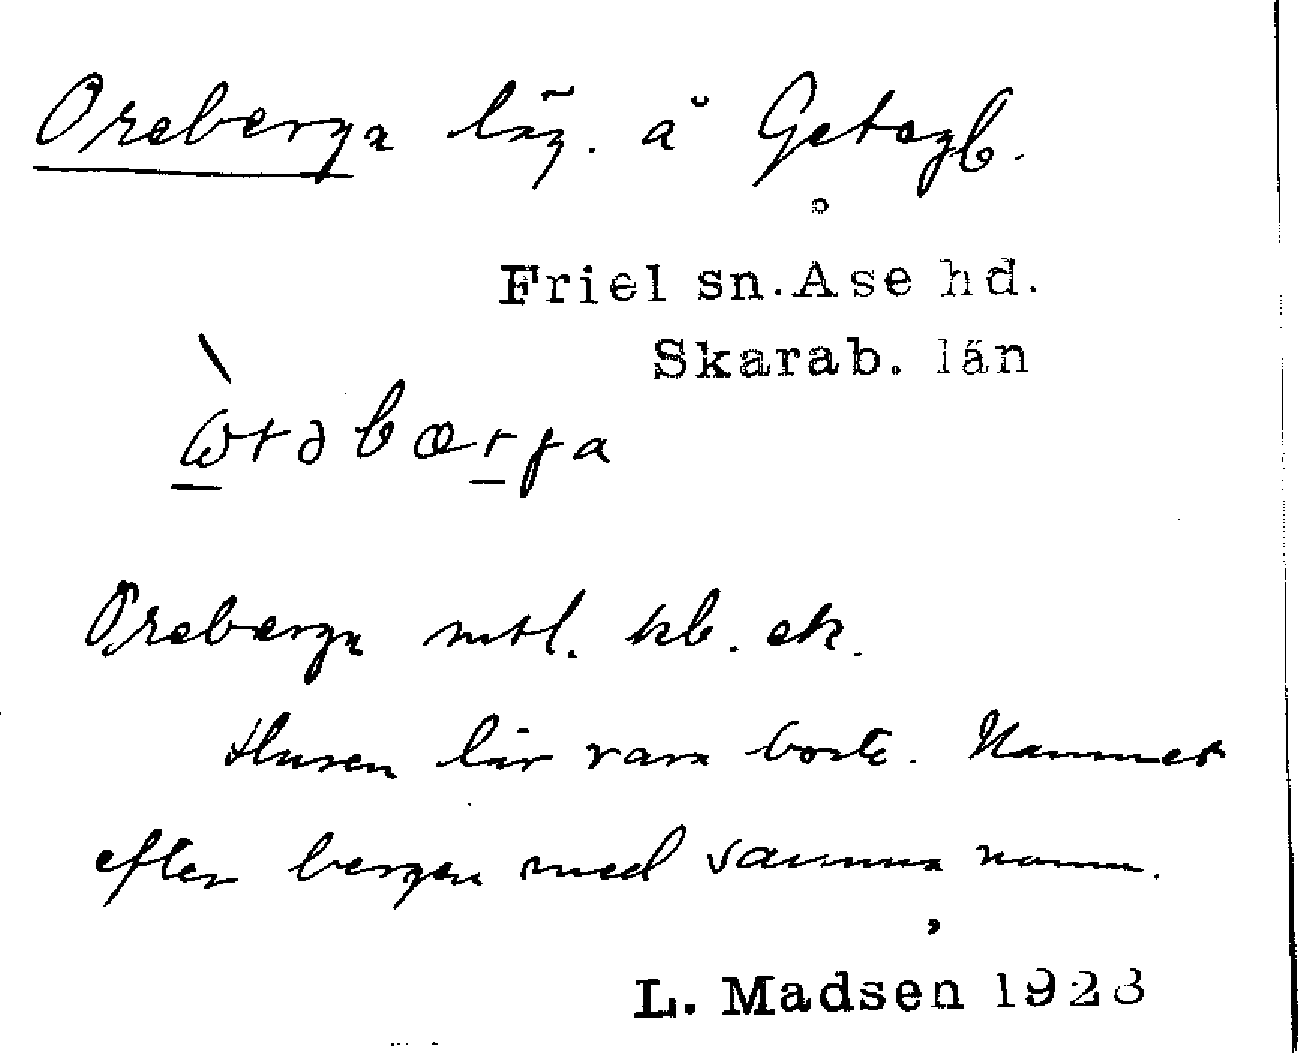 Oreberga läg. å Getegb.
Friel sn. Åse hd.
Skarab. län
ωrəbærja
Oreberga mtl. kb. ek.
Husen lär vara borta. Namnet
efter bergen med samma namn.
L. Madsen 1923